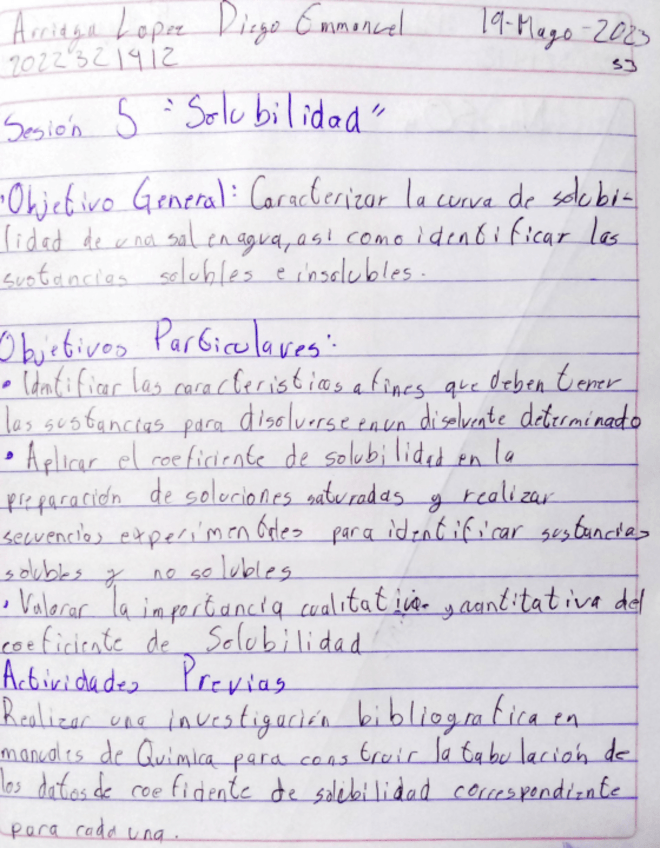 Arriaga Lopez Diego Emmanuel 19-Mayo-2023
2022321412 S3
Sesión 5 "Solubilidad"
Objetivo General: Caracterizar la curva de solubi-
lidad de una sal en agua, asi como identificar las
sustancias solubles e insolubles.
Objetivos Particulares:
• Identificar las caracteristicas afines que deben tener
las sustancias para disolverse en un disolvente determinado
• Aplicar el coeficiente de solubilidad en la
preparación de soluciones saturadas y realizar
secuencias experimentales para identificar sustancias
solubles y no solubles
• Valorar la importancia cualitativa y cuantitativa del
coeficiente de Solubilidad
Actividades Previas
Realizar una investigación bibliografica en
manuales de Quimica para construir la tabulación de
los datos de coeficiente de solubilidad correspondiente
para cada una.